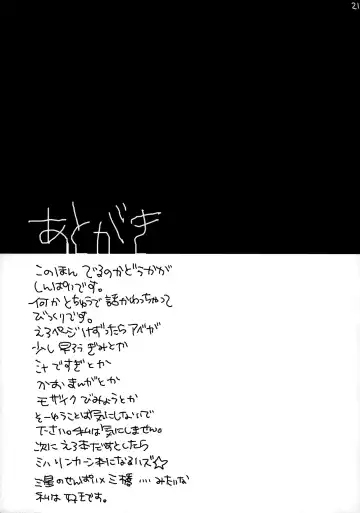 21
あとがき
このほん でるのかどうかが
しんぱいです。
何かとちゅうで話かわっちゃって
びっくりです。
えろページけずったらアベが
少し早ろうぎみとか
ミハですぎとか
かおまんがとか
モザイクびみょうとか
そーゆうことは気にしないで
下さい。私は気にしません。
次にえろ本だすとしたら
ミハリンカーン本になるハズ☆
三星のせんぱい×三橋‥‥みたいな
私は好きです。